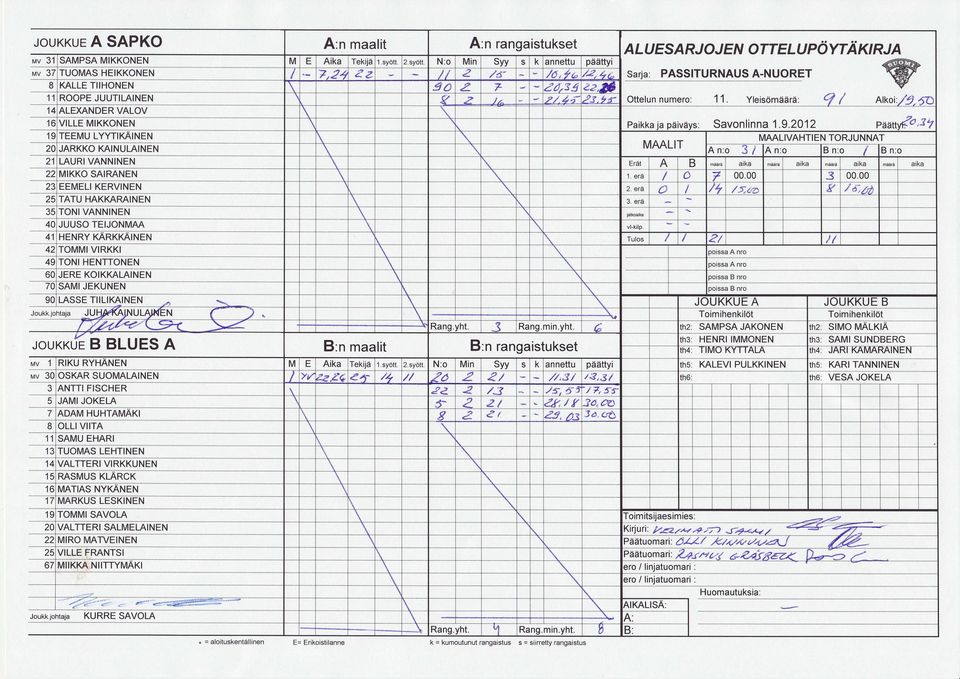 JOUKKUE A SAPKO
MV 31 SAMPSA MIKKONEN
MV 37 TUOMAS HEIKKONEN
8 KALLE TIIHONEN
11 ROOPE JUUTILAINEN
14 ALEXANDER VALOV
16 VILLE MIKKONEN
19 TEEMU LYYTIKÄINEN
20 JARKKO KAINULAINEN
21 LAURI VANNINEN
22 MIKKO SAIRANEN
23 EEMELI KERVINEN
25 TATU HAKKARAINEN
35 TONI VANNINEN
40 JUUSO TEIJONMAA
41 HENRY KÄRKKÄINEN
42 TOMMI VIRKKI
49 TONI HENTTONEN
60 JERE KOIKKALAINEN
70 SAMI JEKUNEN
90 LASSE TIILIKAINEN
Joukk.johtaja JUHA KAINULAINEN
A:n maalit
M E Aika Tekijä 1.syött. 2.syött.
1 - 7,24 22 - -
A:n rangaistukset
N:o Min Syy s k annettu päättyi
11 2 15 - - 10,46 12,46
90 2 7 - - 20,39
8 2 16 - - 21,45 23,45
Rang.yht. 3 Rang.min.yht. 6
JOUKKUE B BLUES A
MV 1 RIKU RYHÄNEN
MV 30 OSKAR SUOMALAINEN
3 ANTTI FISCHER
5 JAMI JOKELA
7 ADAM HUHTAMÄKI
8 OLLI VIITA
11 SAMU EHARI
13 TUOMAS LEHTINEN
14 VALTTERI VIRKKUNEN
15 RASMUS KLÄRCK
16 MATIAS NYKÄNEN
17 MARKUS LESKINEN
19 TOMMI SAVOLA
20 VALTTERI SALMELAINEN
22 MIRO MATVEINEN
25 VILLE FRANTSI
67 MIIKKA NIITTYMÄKI
Joukk.johtaja KURRE SAVOLA
B:n maalit
M E Aika Tekijä 1.syött. 2.syött.
1 YV 22,26 25 14 11
B:n rangaistukset
N:o Min Syy s k annettu päättyi
20 2 21 - - 11.31 13.31
22 2 13 - - 15,55 17.55
5 2 21 - - 28.18 30,00
8 2 21 - - 29.03 30.00
Rang.yht. 4 Rang.min.yht. 8
• = aloituskentällinen E= Erikoistilanne k = kumoutunut rangaistus s = siirretty rangaistus
ALUESARJOJEN OTTELUPÖYTÄKIRJA
SUOMI
Sarja: PASSITURNAUS A-NUORET
Ottelun numero: 11. Yleisömäärä: 91 Alkoi: 19,50
Paikka ja päiväys: Savonlinna 1.9.2012 Päättyi: 20,34
MAALIT MAALIVAHTIEN TORJUNNAT
A n:o 31 A n:o B n:o 1 B n:o
Erät A B määrä aika määrä aika määrä aika määrä aika
1. erä 1 0 7 00.00 3 00.00
2. erä 0 1 14 15,00 8 15,00
3. erä - -
jatkoaika - -
vl-kilp. - -
Tulos 1 1 21 11
poissa A nro
poissa A nro
poissa B nro
poissa B nro
JOUKKUE A JOUKKUE B
Toimihenkilöt Toimihenkilöt
th2: SAMPSA JAKONEN th2: SIMO MÄLKIÄ
th3: HENRI IMMONEN th3: SAMI SUNDBERG
th4: TIMO KYTTALA th4: JARI KAMARAINEN
th5: KALEVI PULKKINEN th5: KARI TANNINEN
th6: th6: VESA JOKELA
Toimitsijaesimies:
Kirjuri: VELIMATTI SAMMI
Päätuomari: OLLI KINNUNEN
Päätuomari: RASMUS GRÄSBECK
ero / linjatuomari :
ero / linjatuomari :
Huomautuksia:
AIKALISÄ: -
A:
B: